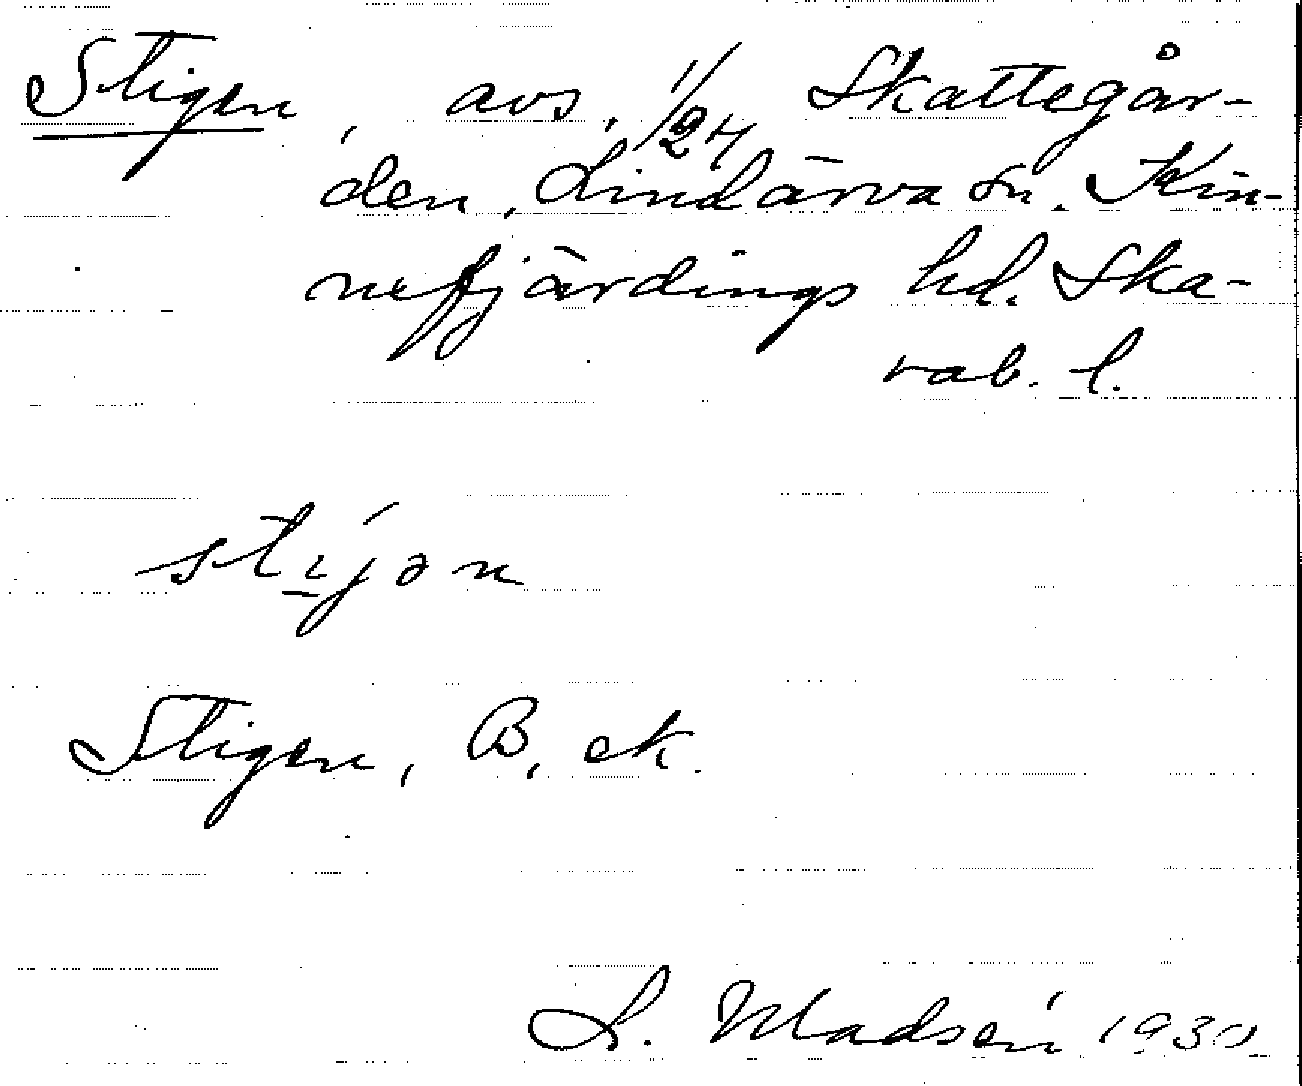 Stigen, avs, 1/24 Skattegår-
den, Lindärva sn. Kin-
nefjärdings hd. Ska-
rab. l.
sti̠jən
Stigen, B, ek.
L. Madsén 1930